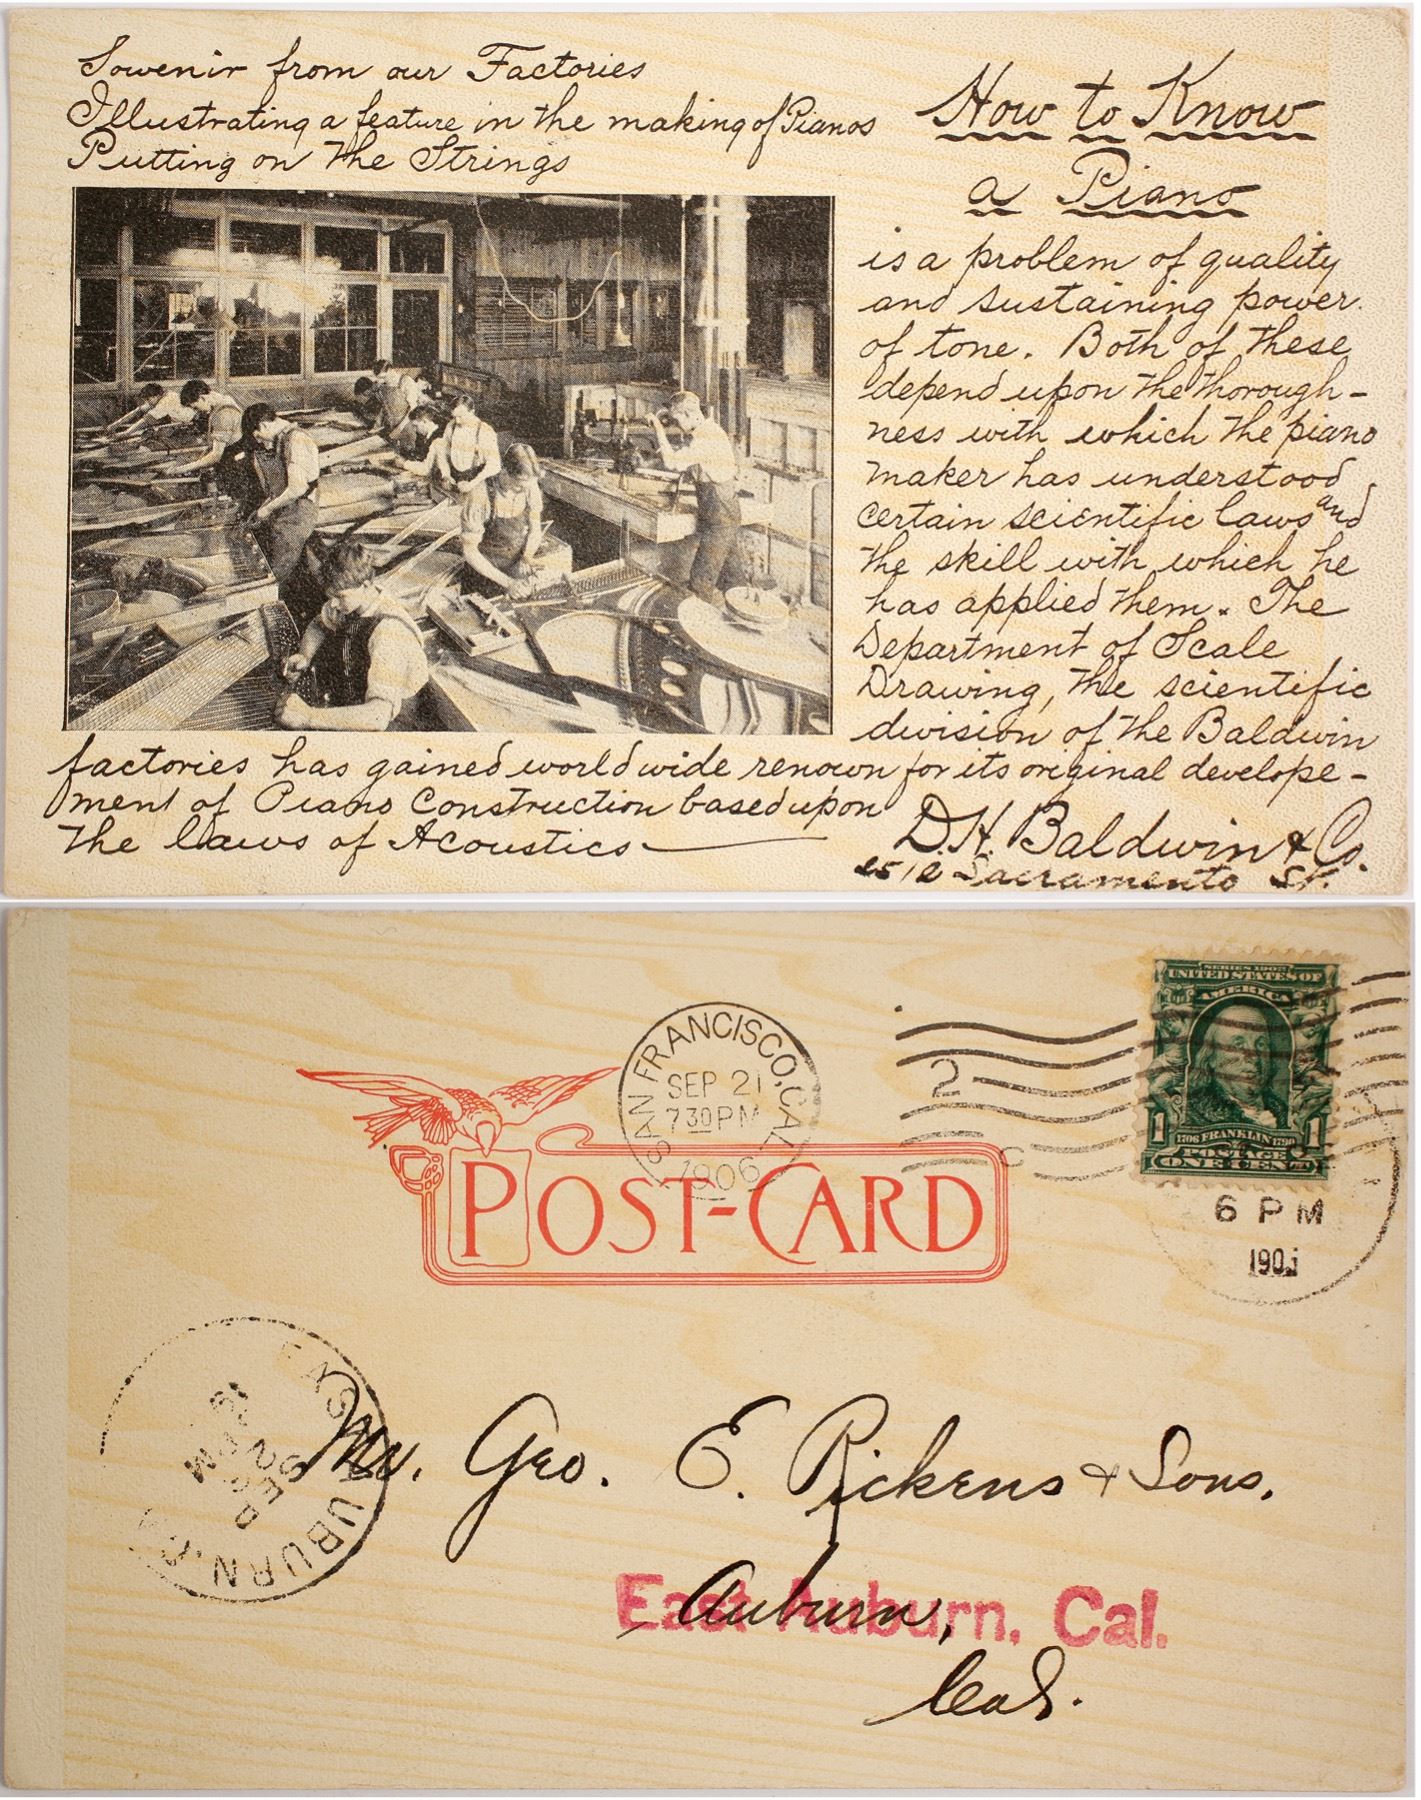 Sovenir from our Factories
Illustrating a feature in the making of Pianos
Putting on the Strings
How to Know
a Piano
is a problem of quality
and sustaining power
of tone. Both of these
depend upon the thorough-
ness with which the piano
maker has understood
certain scientific laws and
the skill with which he
has applied them. The
Department of Scale
Drawing, the scientific
division of the Baldwin
factories has gained world wide renown for its original develope-
ment of Piano Construction based upon
the laws of Acoustics
D. H. Baldwin & Co.
2512 Sacramento St.
SERIES 1902
UNITED STATES OF
AMERICA
1 1706 FRANKLIN 1790 1
POSTAGE
ONE CENT
SAN FRANCISCO, CAL
SEP 21
7 30 PM
1906
2
C
POST-CARD
6 PM
AUBURN,
SEP
PM
Mr. Geo. E. Rickens & Sons.
Auburn,
East Auburn, Cal.
Cal.